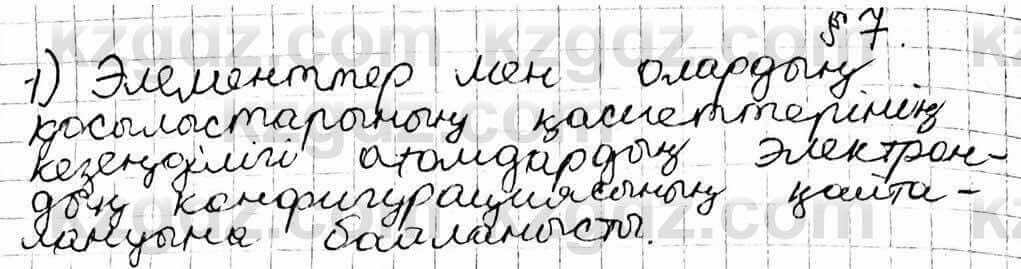 § 7.
1) Элементтер мен олардың
қосылыстарының қасиеттерінің
кезеңділігі атомдардың электрон-
дық конфигурациясының қайта-
лануына байланысты.
kzgdz.com kzgdz.com kzgdz.com